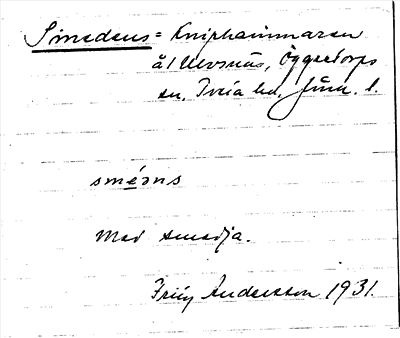 Smedens = Kniphammaren
å Ulvsnäs, Öggestorps
sn, Tveta hd, Jönk. l.
smédns
Med smedja.
Andersson 1931.